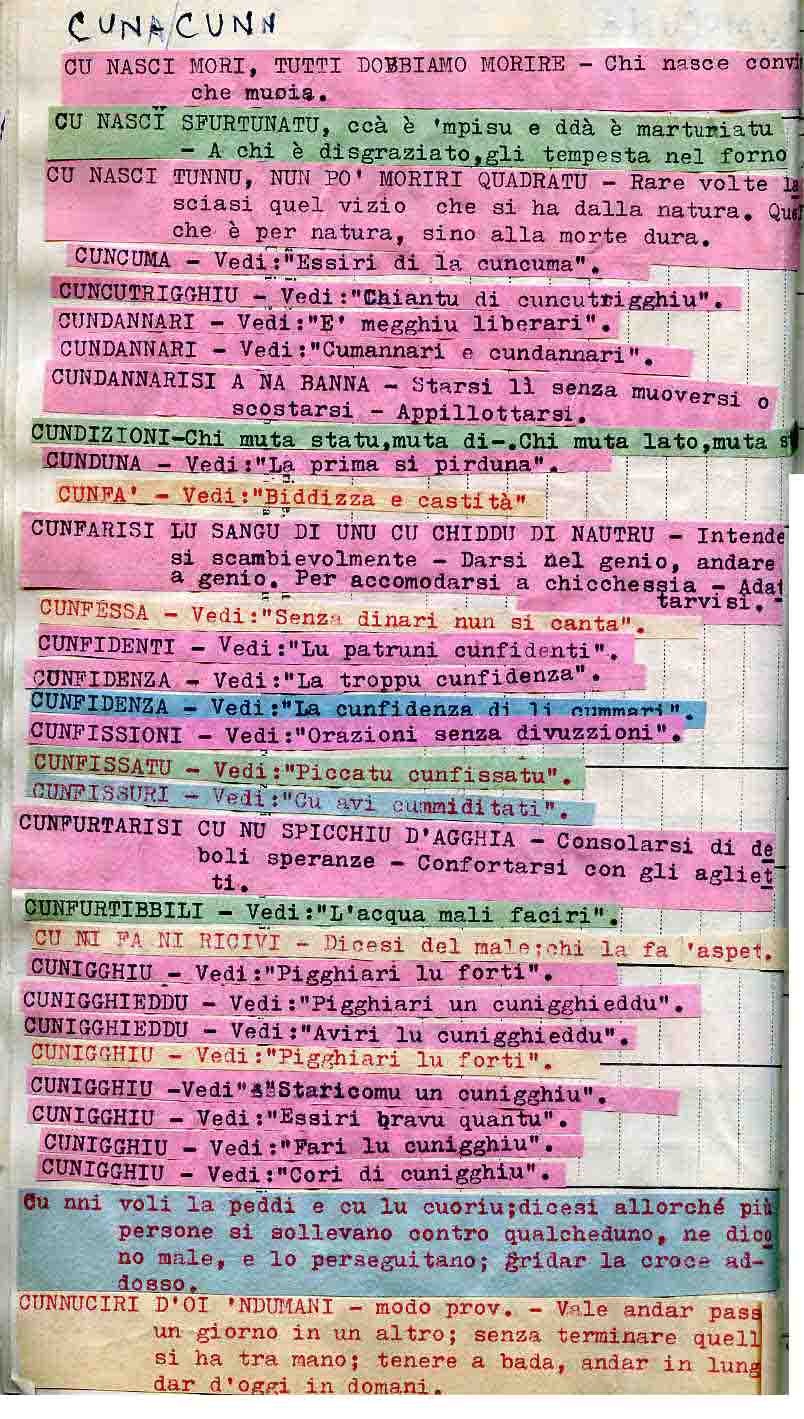 CUNA/CUNN
CU NASCI MORI, TUTTI DOBBIAMO MORIRE - Chi nasce convi
che muoia.
CU NASCI SFURTUNATU, ccà è 'mpisu e ddà è marturiatu
- A chi è disgraziato,gli tempesta nel forno
CU NASCI TUNNU, NUN PO' MORIRI QUADRATU - Rare volte la
sciasi quel vizio che si ha dalla natura. Quel
che è per natura, sino alla morte dura.
CUNCUMA - Vedi:"Essiri di la cuncuma".
CUNCUTRIGGHIU - Vedi:"Chiantu di cuncutrigghiu".
CUNDANNARI - Vedi:"E' megghiu liberari".
CUNDANNARI - Vedi:"Cumannari e cundannari".
CUNDANNARISI A NA BANNA - Starsi lì senza muoversi o
scostarsi - Appillottarsi.
CUNDIZIONI-Chi muta statu,muta di-.Chi muta lato,muta s
CUNDUNA - Vedi:"La prima si pirduna".
CUNFA' - Vedi:"Biddizza e castità"
CUNFARISI LU SANGU DI UNU CU CHIDDU DI NAUTRU - Intende
si scambievolmente - Darsi nel genio, andare
a genio. Per accomodarsi a chicchessia - Adat
tarvisi. -
CUNFESSA - Vedi:"Senza dinari nun si canta".
CUNFIDENTI - Vedi:"Lu patruni cunfidenti".
CUNFIDENZA - Vedi:"La troppu cunfidenza".
CUNFIDENZA - Vedi:"La cunfidenza di li cummari".
CUNFISSIONI - Vedi:"Orazioni senza divuzzioni".
CUNFISSATU - Vedi:"Piccatu cunfissatu".
CUNFISSURI - Vedi:"Cu avi cummiditati".
CUNFURTARISI CU NU SPICCHIU D'AGGHIA - Consolarsi di de
boli speranze - Confortarsi con gli agliet
ti.
CUNFURTIBBILI - Vedi:"L'acqua mali faciri".
CU NI FA NI RICIVI - Dicesi del male;chi la fa 'aspet.
CUNIGGHIU - Vedi:"Pigghiari lu forti".
CUNIGGHIEDDU - Vedi:"Pigghiari un cunigghieddu".
CUNIGGHIEDDU - Vedi:"Aviri lu cunigghieddu".
CUNIGGHIU - Vedi:"Pigghiari lu forti".
CUNIGGHIU -Vedi"Staricomu un cunigghiu".
CUNIGGHIU - Vedi:"Essiri bravu quantu".
CUNIGGHIU - Vedi:"Fari lu cunigghiu".
CUNIGGHIU - Vedi:"Cori di cunigghiu".
Cu nni voli la peddi e cu lu cuoriu;dicesi allorché più
persone si sollevano contro qualcheduno, ne dico
no male, e lo perseguitano; gridar la croce ad-
dosso.
CUNNUCIRI D'OI 'NDUMANI - modo prov. - Vale andar pass
un giorno in un altro; senza terminare quell
si ha tra mano; tenere a bada, andar in lung
dar d'oggi in domani.